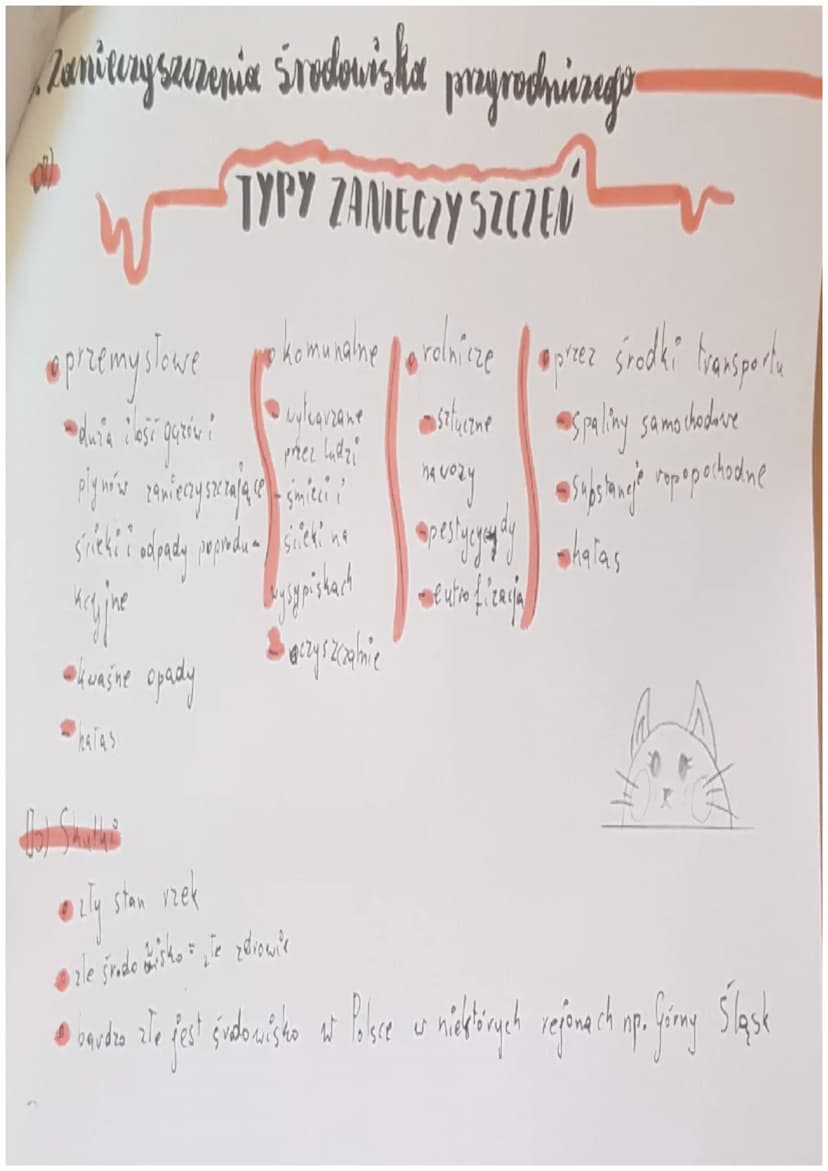 Zanieczyszczenia środowiska przyrodniczego
a)
TYPY ZANIECZYSZCZEŃ
przemysłowe
- duża ilość gazów i
płynów zanieczyszczające
ścieki i odpady poprodu-
kcyjne
- kwaśne opady
- hałas
komunalne
- wytwarzane
przez ludzi
śmieci i
ścieki na
wysypiskach
- oczyszczalnie
rolnicze
- sztuczne
nawozy
- pestycydy
- eutrofizacja
przez środki transportu
- spaliny samochodowe
- substancje ropopochodne
- hałas
b) Skutki
zły stan rzek
złe środowisko = złe zdrowie
bardzo złe jest środowisko w Polsce w niektórych rejonach np. Górny Śląsk